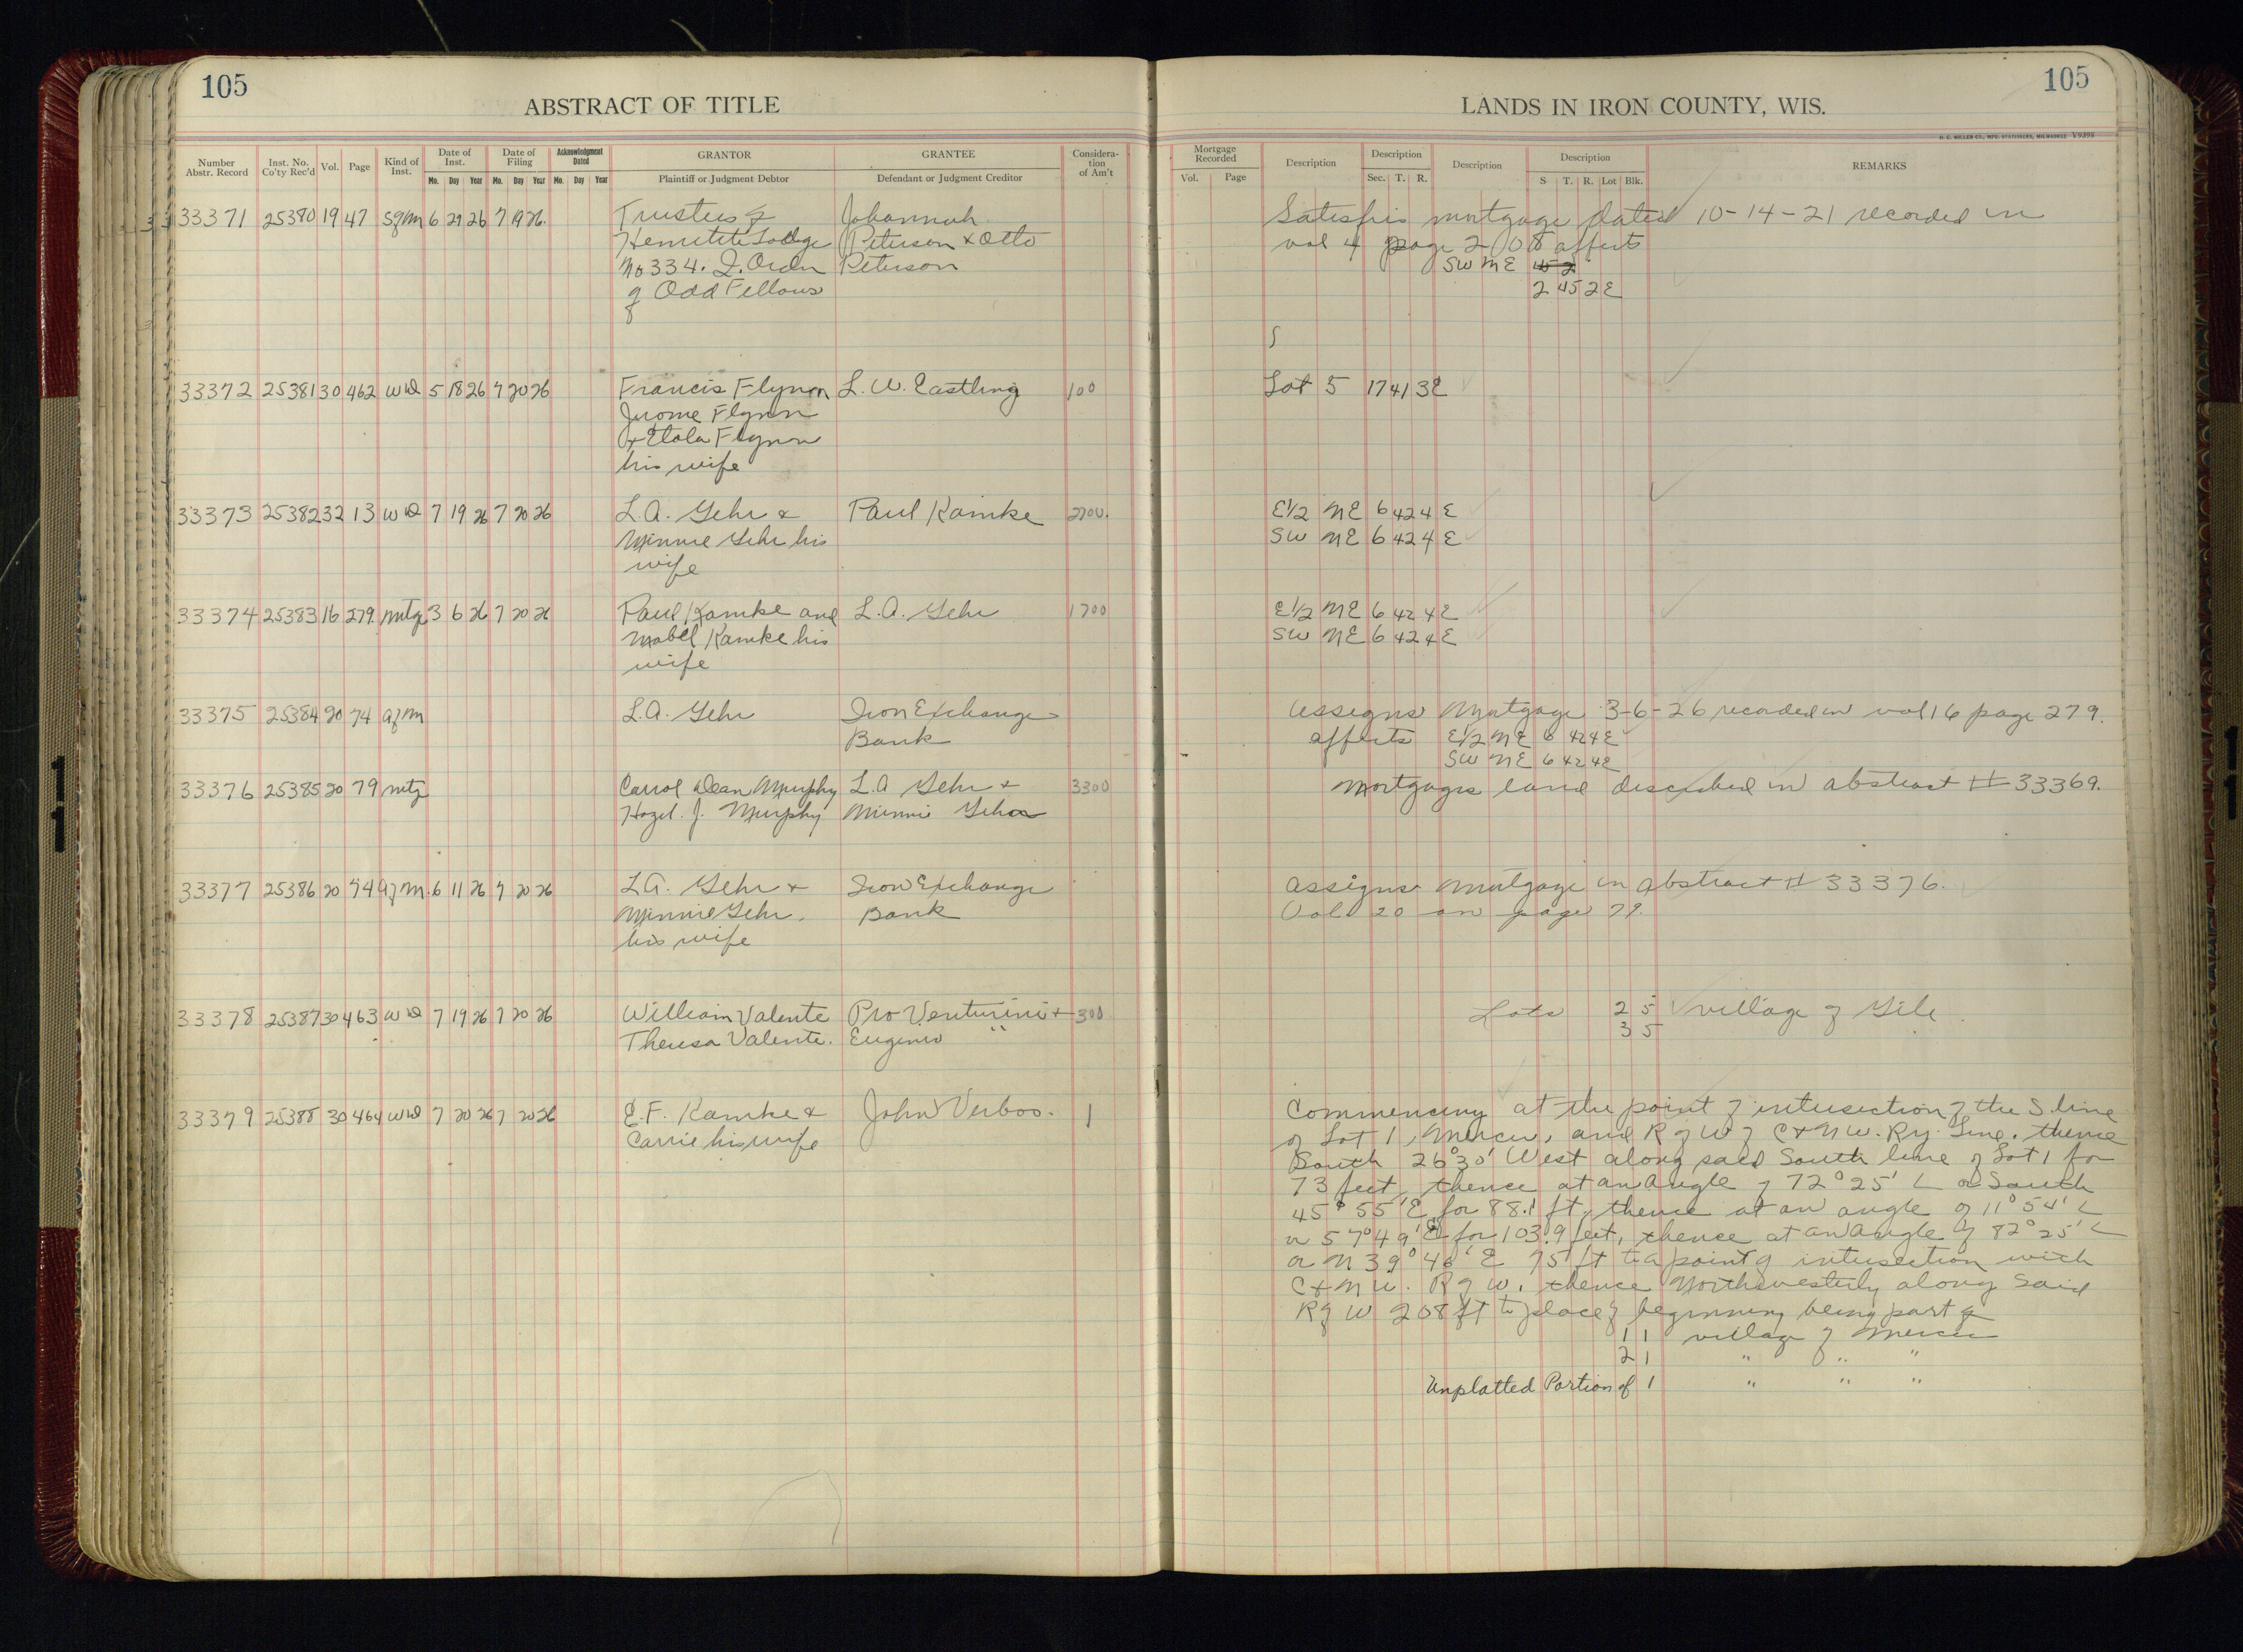 105
ABSTRACT OF TITLE
Number Abstr. Record Inst. No. Co'ty Rec'd Vol. Page Kind of Inst. Date of Inst. Mo. Day Year Date of Filing Mo. Day Year Acknowledgment Dated Mo. Day Year GRANTOR Plaintiff or Judgment Debtor GRANTEE Defendant or Judgment Creditor Considera-tion of Am't
33371 25380 19 47 Sfm 6 29 26 7 19 26 Trustees of Johannah
Hematite Lodge Peterson & Otto
No 334. I. Order Peterson
of Odd Fellows
33372 25381 30 462 WD 5 18 26 7 20 26 Francis Flynn L. W. Eastling 100
Jerome Flynn
& Flynn
his wife
33373 25382 32 13 WD 7 19 26 7 20 26 L.A. Gehr & Paul Kamke 2700.
Minnie Gehr his
wife
33374 25383 16 279 mtg 3 6 26 7 20 26 Paul Kamke and L.A. Gehr 1700
Mabel Kamke his
wife
33375 25384 20 74 afm L.A. Gehr Iron Exchange
Bank
33376 25385 20 79 mtg Carrol Dean Murphy L.A Gehr & 3300
Hazel. J. Murphy Minnie Gehr
33377 25386 20 74 afm. 6 11 26 7 20 26 L.A. Gehr & Iron Exchange
Minnie Gehr. Bank
his wife
33378 25387 30 463 WD 7 19 26 7 20 26 William Valente Pro Venturini & 300
Theresa Valente. Eugenio "
33379 25388 30 464 WD 7 20 26 7 20 26 E.F. Kamke & John Verbos. 1
Carrie his wife
105
LANDS IN IRON COUNTY, WIS.
H. C. MILLER CO., MFG. STATIONERS, MILWAUKEE V9398
Mortgage Recorded Vol. Page Description Description Sec. T. R. Description Description S T. R. Lot Blk. REMARKS
Satisfies mortgage dated 10-14-21 recorded in
vol 4 page 208 affects
SW NE 45 2
2 45 2E
Lot 5 17 41 3E
E1/2 NE 6 42 4 E
SW NE 6 42 4 E
E1/2 NE 6 42 4E
SW NE 6 42 4E
Assigns Mortgage 3-6-26 recorded in vol 16 page 279.
affects E1/2 NE 6 42 4E
SW NE 6 42 4E
Mortgages land described in abstract # 33369.
Assigns Mortgage in abstract # 33376.
Vol. 20 on page 79.
Lots 2 5 village of Gile
3 5
Commencing at the point of intersection of the S line
of Lot 1, Mercer, and R of W of C & N W. Ry. Line. thence
South 26°30' West along said South line of Lot 1 for
73 feet, thence at an angle of 72°25' L or South
45° 55' E for 88.1 ft, thence at an angle of 11°54' L
or 57°49' E for 103.9 feet, thence at an angle of 82°25' L
or N 39°46' E 75 ft to a point of intersection with
C & N W. R of W. thence Northwesterly along said
R of W 208 ft to place of beginning being part of
1 1 village of Mercer
2 1 " " "
Unplatted Portion of 1 " " "